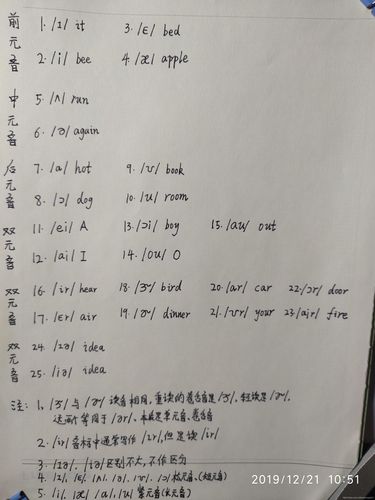 前元音 1. /ɪ/ it 3. /ɛ/ bed
2. /i/ bee 4. /æ/ apple
中元音 5. /ʌ/ run
6. /ə/ again
后元音 7. /a/ hot 9. /ʊ/ book
8. /ɔ/ dog 10. /u/ room
双元音 11. /ei/ A 13. /ɔi/ boy 15. /aʊ/ out
12. /ai/ I 14. /oʊ/ O
双元音 16. /ir/ hear 18. /ɝ/ bird 20. /ar/ car 22. /ɔr/ door
17. /ɛr/ air 19. /ɚ/ dinner 21. /ʊr/ your 23. /air/ fire
双元音 24. /ɪə/ idea
25. /iə/ idea
注: 1. /ɝ/ 与 /ɚ/ 读音相同, 重读的卷舌音是/ɝ/, 轻读是/ɚ/,
这两个等同于/ər/、本质是单元音、卷舌音
2. /ir/ 音标中通常写作 /ɪr/, 但是读 /ir/
3. /ɪə/、/iə/ 区别不大, 不作区分
4. /ɪ/, /ɛ/, /ʌ/, /ə/, /ʊ/, /ɔ/ 松元音、(短元音)
5. /i/, /æ/, /a/, /u/ 紧元音(长元音)
2019/12/21 10:51